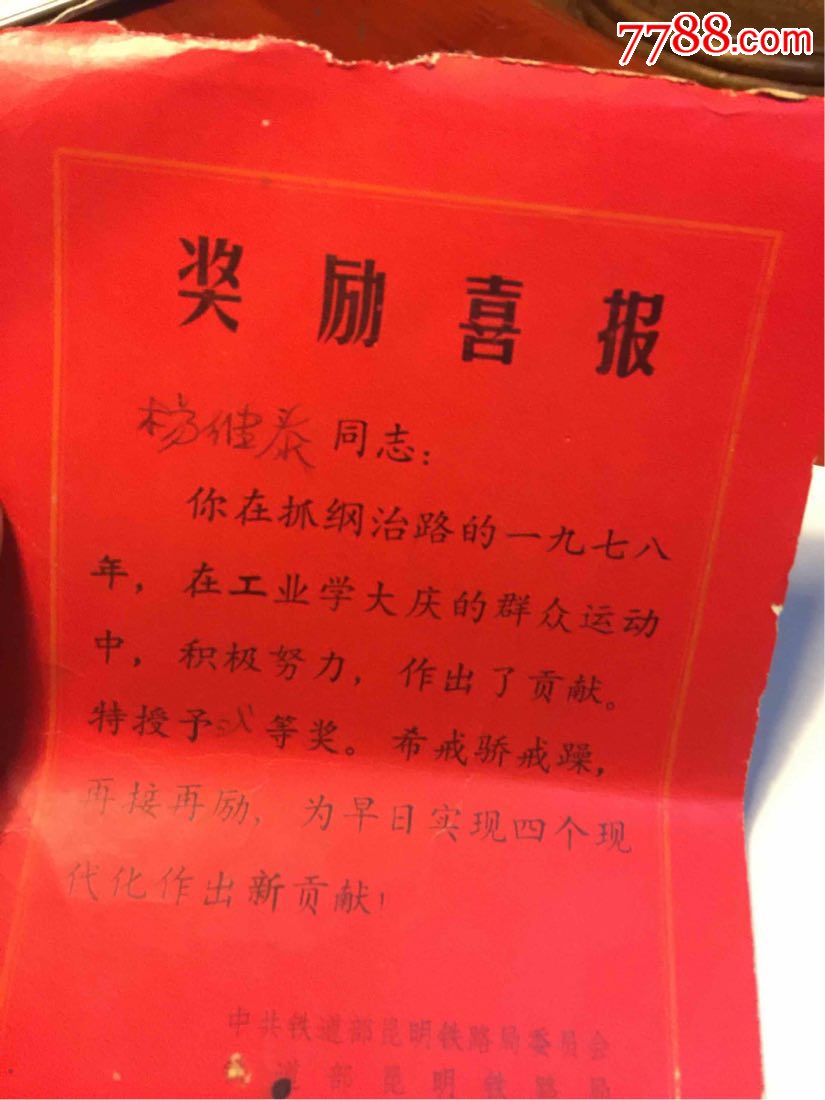 7788.com
奖励喜报
杨继泰同志：
你在抓纲治路的一九七八
年，在工业学大庆的群众运动
中，积极努力，作出了贡献。
特授予 等奖。希戒骄戒躁，
再接再励，为早日实现四个现
代化作出新贡献！
中共铁道部昆明铁路局委员会
道部昆明铁路局